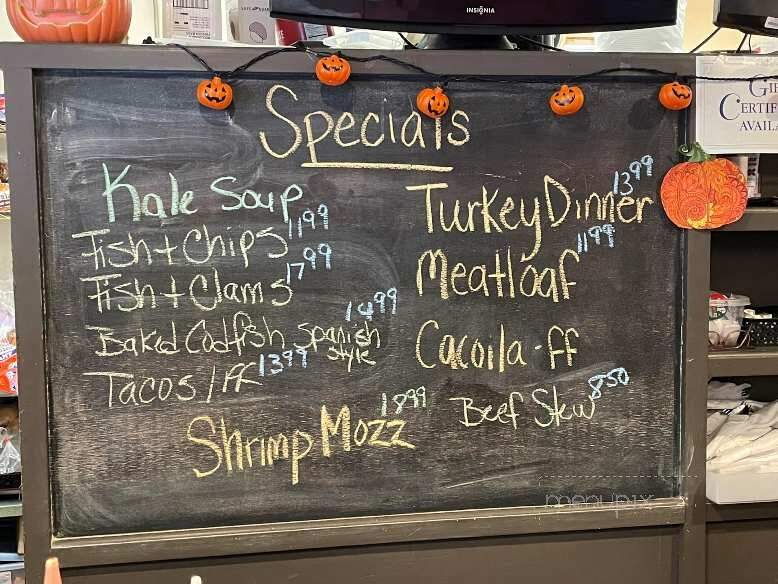 INSIGNIA
Specials
Kale Soup
Fish + Chips 11 99
Fish + Clams 17 99
Baked Codfish Spanish style 14 99
Tacos / FF 13 99
Shrimp Mozz 18 99
Turkey Dinner 13 99
Meatloaf 11 99
Cacoila - FF
Beef Stew 8 50
menupix